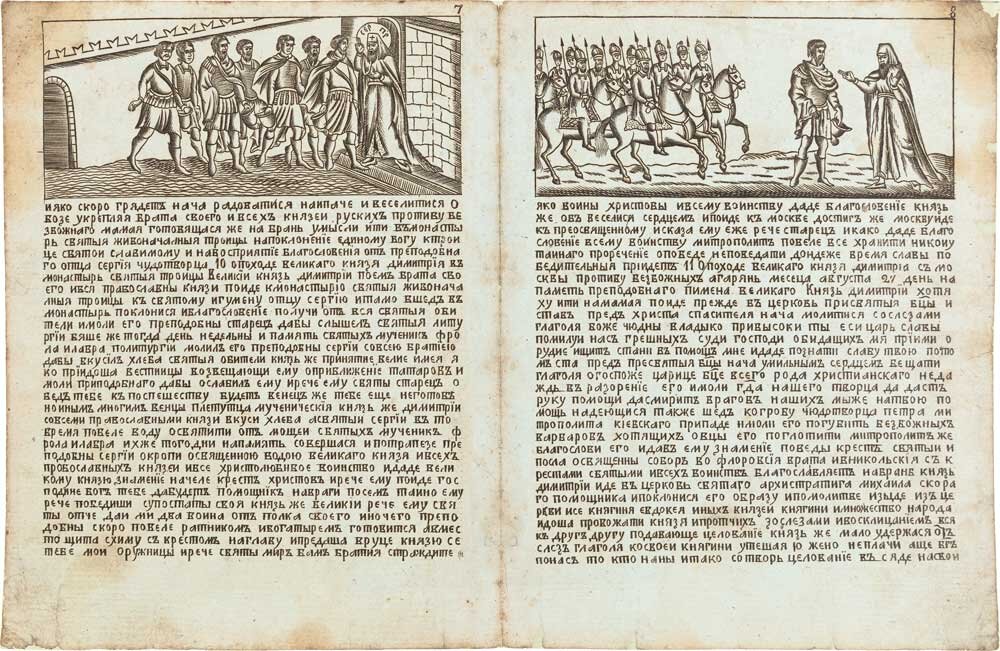 7
СЕР ПР
ияко скоро грядетъ нача радоватися наипаче и веселитися о
бозе укрепляя брата своего ивсехъ князеи руских противу бе
збожнаго мамая готовящася же на брань умысли ити въмонасты
рь святыя живоначалныя троицы напоклонение единому богу ктрои
це святои славимому и навосприятие благословения отъ преподобна
го отца сергия чюдотворца 10 опоходе великаго князя димитрия въ
монастырь святыя троицы великии князь димитрии поемъ брата сво
его ився православны князи поиде кмонастырю святыя живонача
лныя троицы къ святому игумену отцу сергию итамо вшедъ въ
монастырь поклонися иблагословение получи отъ вся святыя оби
тели имоли его преподобны старецъ дабы слышелъ святыя литу
ргии бяше же тогда день недельны и память святыхъ мученикъ фро
ла илавра политургии молилъ его преподобны сергии совсею братиею
дабы вкусилъ хлеба святыя обители князь же приятие велие имея я
ко приидоша вестницы возвещающи ему оприближение татаровъ и
моли приподобнаго дабы ославилъ ему ирече ему святы старецъ о
ведъ тебе къ поспешеству будетъ венецъ же тебе еще неготовъ
ноинымъ многимъ венцы плетутца мученическия князь же димитрии
совсеми православными князи вкуси хлеба святыи сергии въ то
время повеле воду освятити отъ мощеи святыхъ мученикъ ф
рола илавра ихже погодни напамять совершался и потрапезе пре
подобны сергии окропи освященною водою великаго князя ивсехъ
провославныхъ князеи ивсе христолюбивое воинство идаде вели
кому князю знамение начеле крестъ христовъ ирече ему поиде гос
подине богъ тебе дабудетъ помощникъ навраги посемъ таино ему
рече победиши супостаты своя князь же великии рече ему свя
ты отче даи ми два воина отъ полка своего иночего препо
добны скоро повеле ратникомъ ибогатыремъ готовится авмес
то щита схиму съ крестомъ наглаву ипредаша вруце князю се
тебе мои оружницы ирече святы миръ вамъ братия страждите
8
яко воины христовы ивсему воинству даде благословение князь
же объ веселися сердцемъ ипоиде къ москве достигъ же москвуиде
къ пресвященному исказа ему еже рече старецъ икако даде благо
словение всему воинству митрополитъ повеле все хранити никому
таинаго проречение оповеде неповедати дондеже время славы по
бедительныя приидетъ 11 опоходе великаго князя димитрия съ мо
сквы противу безбожныхъ агарянъ месяца августа 27 день на
паметь преподобнаго пимена великаго князь димитрии хотя
ху ити намамая поиде прежде въ церковь присвятыя бцы и
ставъ предъ христа спасителя нача молитися сослезами
глаголя боже чюдны владыко привысоки ты еси царь славы
помилуи насъ грешныхъ суди господи обидящихъ мя приими о
рудие ищитъ стани въ помощь мне идаде познати славу твою потто
мъ ста предъ пресвятыя бцы нача умильнымъ сердцемъ вещати
глаголя огоспоже царице бце всего рода христианскаго неда
ждь въ разорение его имоли гда нашего творца да дастъ
руку помощи дасмиритъ враговъ нашихъ мыже натвою по
мощь надеющися также шедъ кгробу чюдотворца петра ми
трополита киевскаго припаде имоли его погубить безбожныхъ
варваровъ хотящихъ овцы его поглотити митрополитъже
благослови его идавъ ему знамение победы крестъ святыи и
посла освященны соборъ во флоровския врата ивникольския съ к
рестами святыми ивсехъ воинствъ благословляетъ набрань князь
димитрии иде въ церковь святаго архистратига михаила скора
го помощника ипоклонися его образу ипомолитве изыде изъ це
ркви исе княгиня евдокея иныхъ князеи княгини имножество народа
идоша провожати князя ипротчихъ зослезами ивосклицаниемъ вся
къ другъ другу подавающе целование князь же мало удержася отъ
слезъ глаголя косвоеи княгини утешая ю жено неплачи аще бгъ
понасъ то кто наны итако сотворь целование въсяде насвои